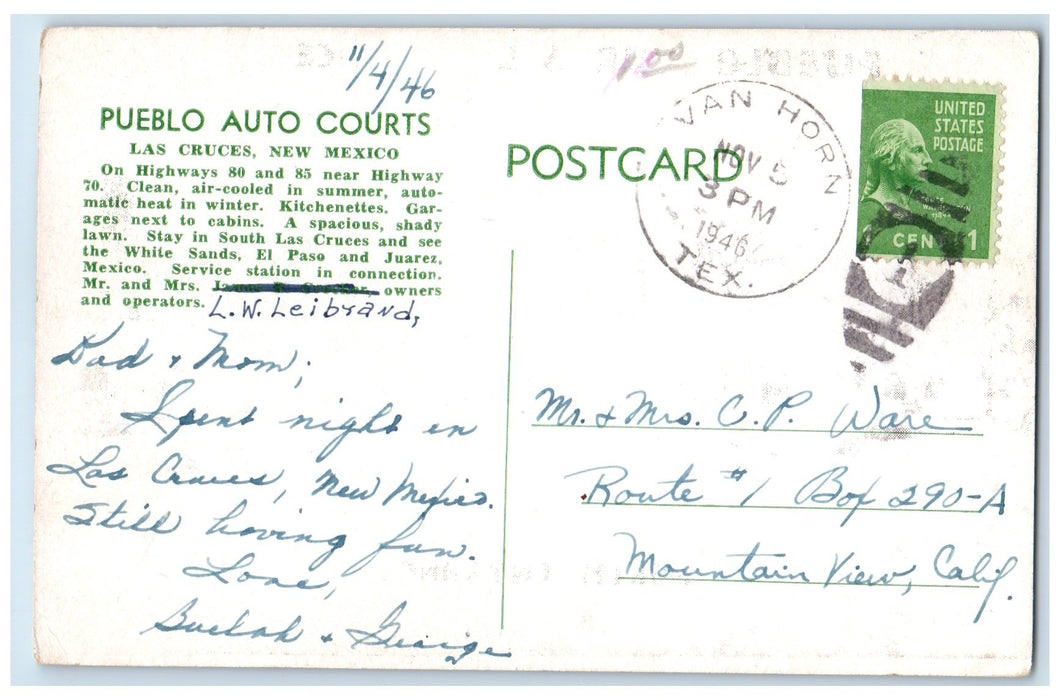 11/4/46
1.00
PUEBLO AUTO COURTS
LAS CRUCES, NEW MEXICO
On Highways 80 and 85 near Highway
70. Clean, air-cooled in summer, auto-
matic heat in winter. Kitchenettes. Gar-
ages next to cabins. A spacious, shady
lawn. Stay in South Las Cruces and see
the White Sands, El Paso and Juarez,
Mexico. Service station in connection.
Mr. and Mrs. owners
and operators. L.W. Leibrand,
Dad & Mom;
Spent night in
Las Cruces, New Mexico.
Still having fun.
Love,
Buelah & George
POSTCARD
VAN HORN
NOV 5
3 PM
1946
TEX.
UNITED
STATES
POSTAGE
1 CENT 1
Mr. & Mrs. C. P. Ware
Route #1 Box 290-A
Mountain View, Calif.